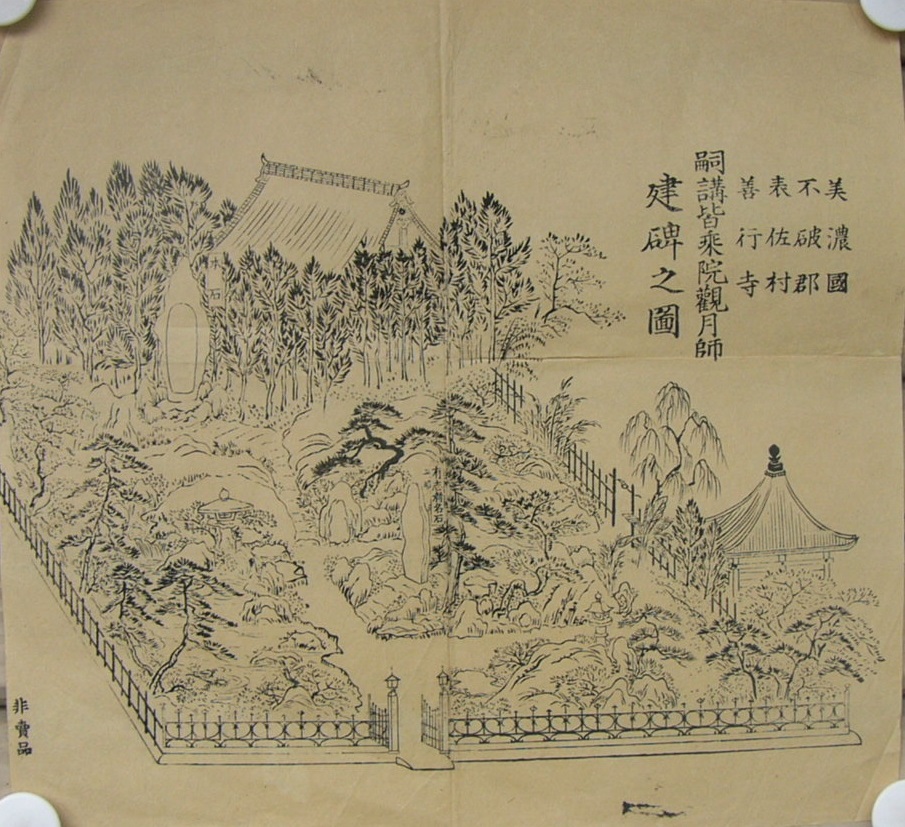 美濃國
不破郡
表佐村
善行寺
嗣講皆乘院觀月師
建碑之圖
非賣品